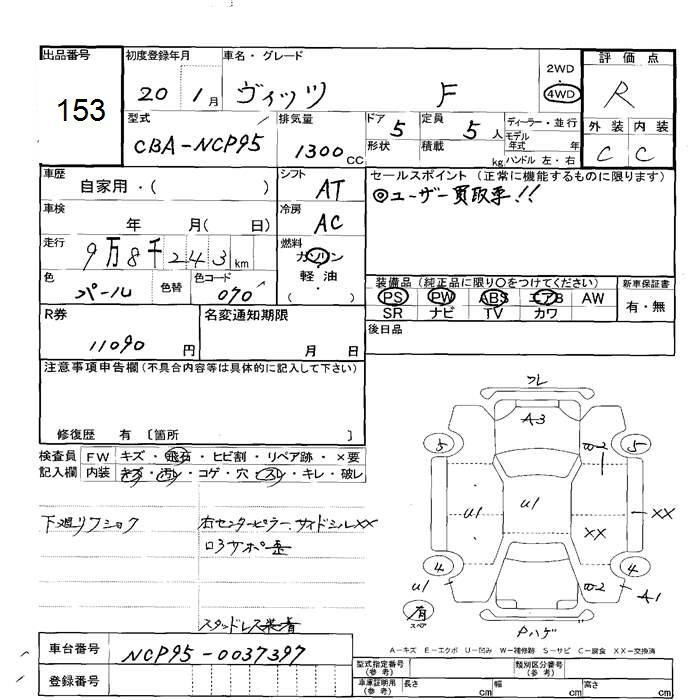 出品番号
153
初度登録年月
20 1月
車名・グレード
ヴィッツ F
2WD
4WD
評価点
R
外装 内装
C C
型式
CBA-NCP95
排気量
1300CC
ドア 5
形状
定員 5人
積載 kg
ディーラー・並行
モデル年式 年
ハンドル 左・右
車歴
自家用・( )
シフト
AT
セールスポイント(正常に機能するものに限ります)
◎ユーザー買取車!!
車検
年 月( 日)
冷房
AC
走行
9万8千243km
燃料
ガソリン
軽油
( ・ )
色
パール
色替
色コード
070
装備品(純正品に限り○をつけてください)
PS PW ABS エアB AW
SR ナビ TV カワ
新車保証書
有・無
R券
11090円
名変通知期限
月 日
後日品
注意事項申告欄(不具合内容等は具体的に記入して下さい)
修復歴 有 〔箇所 〕
検査員記入欄
FW キズ・飛石・ヒビ割・リペア跡・×要
内装 キズ・汚レ・コゲ・穴・スレ・キレ・破レ
下廻リフショク
右センターピラー、サイドシルXX
ロアサポ歪
スタッドレス装着
フレ
A3
5
W2
5
U1
U1
XX
XX
4
W2
4
U1
A1
有
スペア
Pハゲ
A-キズ E-エクボ U-凹み W-補修跡 S-サビ C-腐食 XX-交換済
車台番号
NCP95-0037397
登録番号
型式指定番号(参考)
類別区分番号(参考)
車庫証明用(参考)
長さ cm
幅 cm
高さ cm